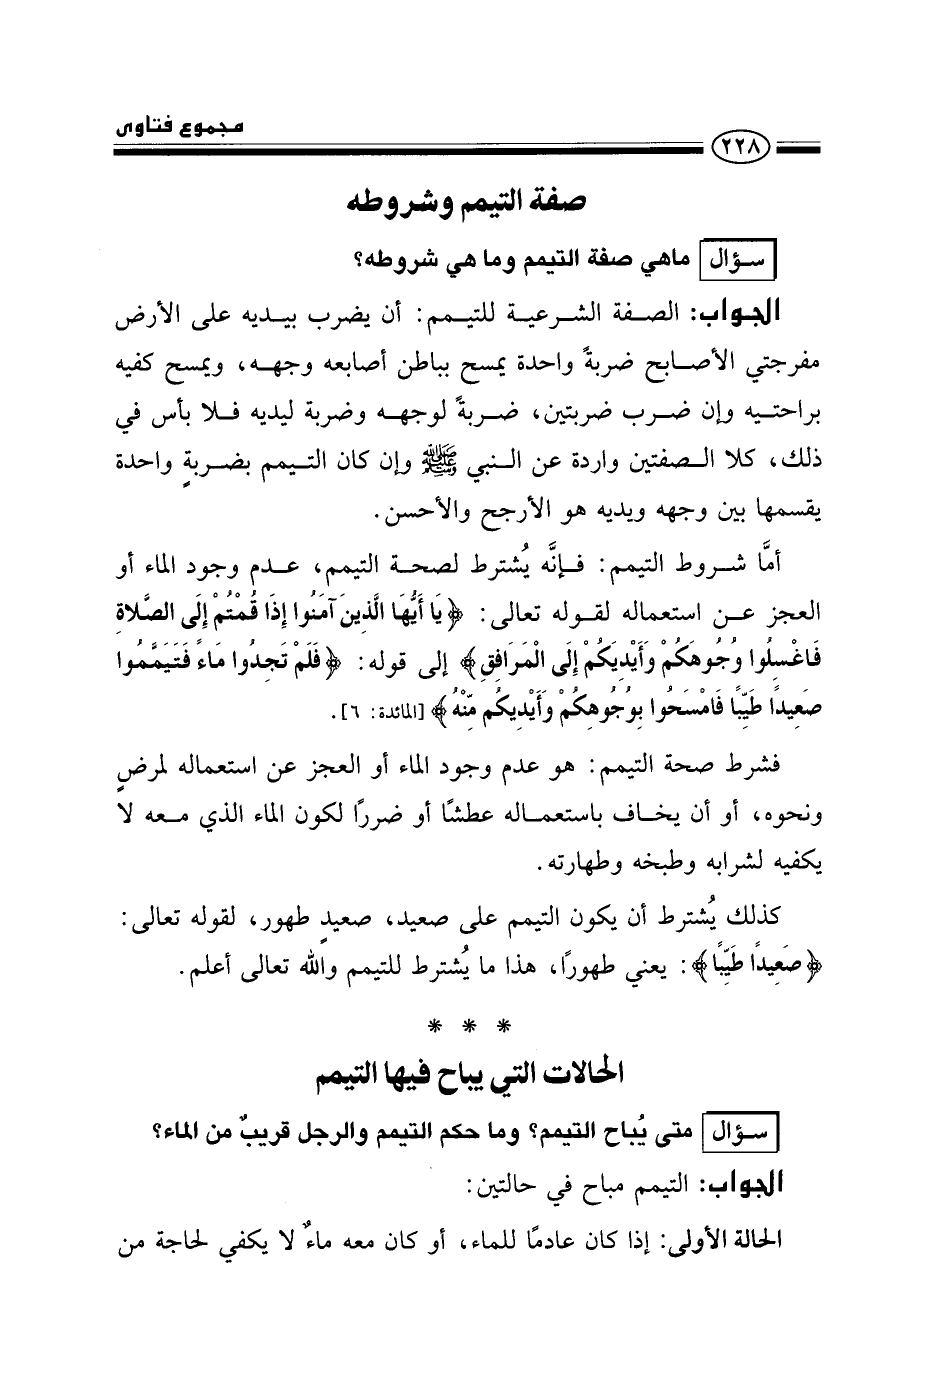 مجموع فتاوى
٢٢٨
صفة التيمم وشروطه
سؤال ماهي صفة التيمم وما هي شروطه؟
الجواب: الصفة الشرعية للتيمم: أن يضرب بيديه على الأرض
مفرجتي الأصابح ضربةً واحدة يمسح بباطن أصابعه وجهه، ويمسح كفيه
براحتيه وإن ضرب ضربتين، ضربةً لوجهه وضربة ليديه فلا بأس في
ذلك، كلا الصفتين واردة عن النبي ﷺ وإن كان التيمم بضربةٍ واحدة
يقسمها بين وجهه ويديه هو الأرجح والأحسن.
أمَّا شروط التيمم: فإنَّه يُشترط لصحة التيمم، عدم وجود الماء أو
العجز عن استعماله لقوله تعالى: ﴿يَا أَيُّهَا الَّذِينَ آمَنُوا إِذَا قُمْتُمْ إِلَى الصَّلاةِ
فَاغْسِلُوا وُجُوهَكُمْ وَأَيْدِيَكُمْ إِلَى الْمَرَافِقِ﴾ إلى قوله: ﴿فَلَمْ تَجِدُوا مَاءً فَتَيَمَّمُوا
صَعِيدًا طَيِّبًا فَامْسَحُوا بِوُجُوهِكُمْ وَأَيْدِيكُم مِّنْهُ﴾ [المائدة: ٦].
فشرط صحة التيمم: هو عدم وجود الماء أو العجز عن استعماله لمرضٍ
ونحوه، أو أن يخاف باستعماله عطشًا أو ضررًا لكون الماء الذي معه لا
يكفيه لشرابه وطبخه وطهارته.
كذلك يُشترط أن يكون التيمم على صعيد، صعيدٍ طهور، لقوله تعالى:
﴿صَعِيدًا طَيِّبًا﴾: يعني طهورًا، هذا ما يُشترط للتيمم والله تعالى أعلم.
* * *
الحالات التي يباح فيها التيمم
سؤال متى يُباح التيمم؟ وما حكم التيمم والرجل قريبٌ من الماء؟
الجواب: التيمم مباح في حالتين:
الحالة الأولى: إذا كان عادمًا للماء، أو كان معه ماءٌ لا يكفي لحاجة من